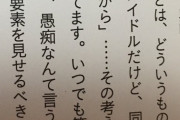 とは、どういうもの
イドルだけど、同
から」……その考
てます。いつでも笑
、愚痴なんて言う
要素を見せるべき